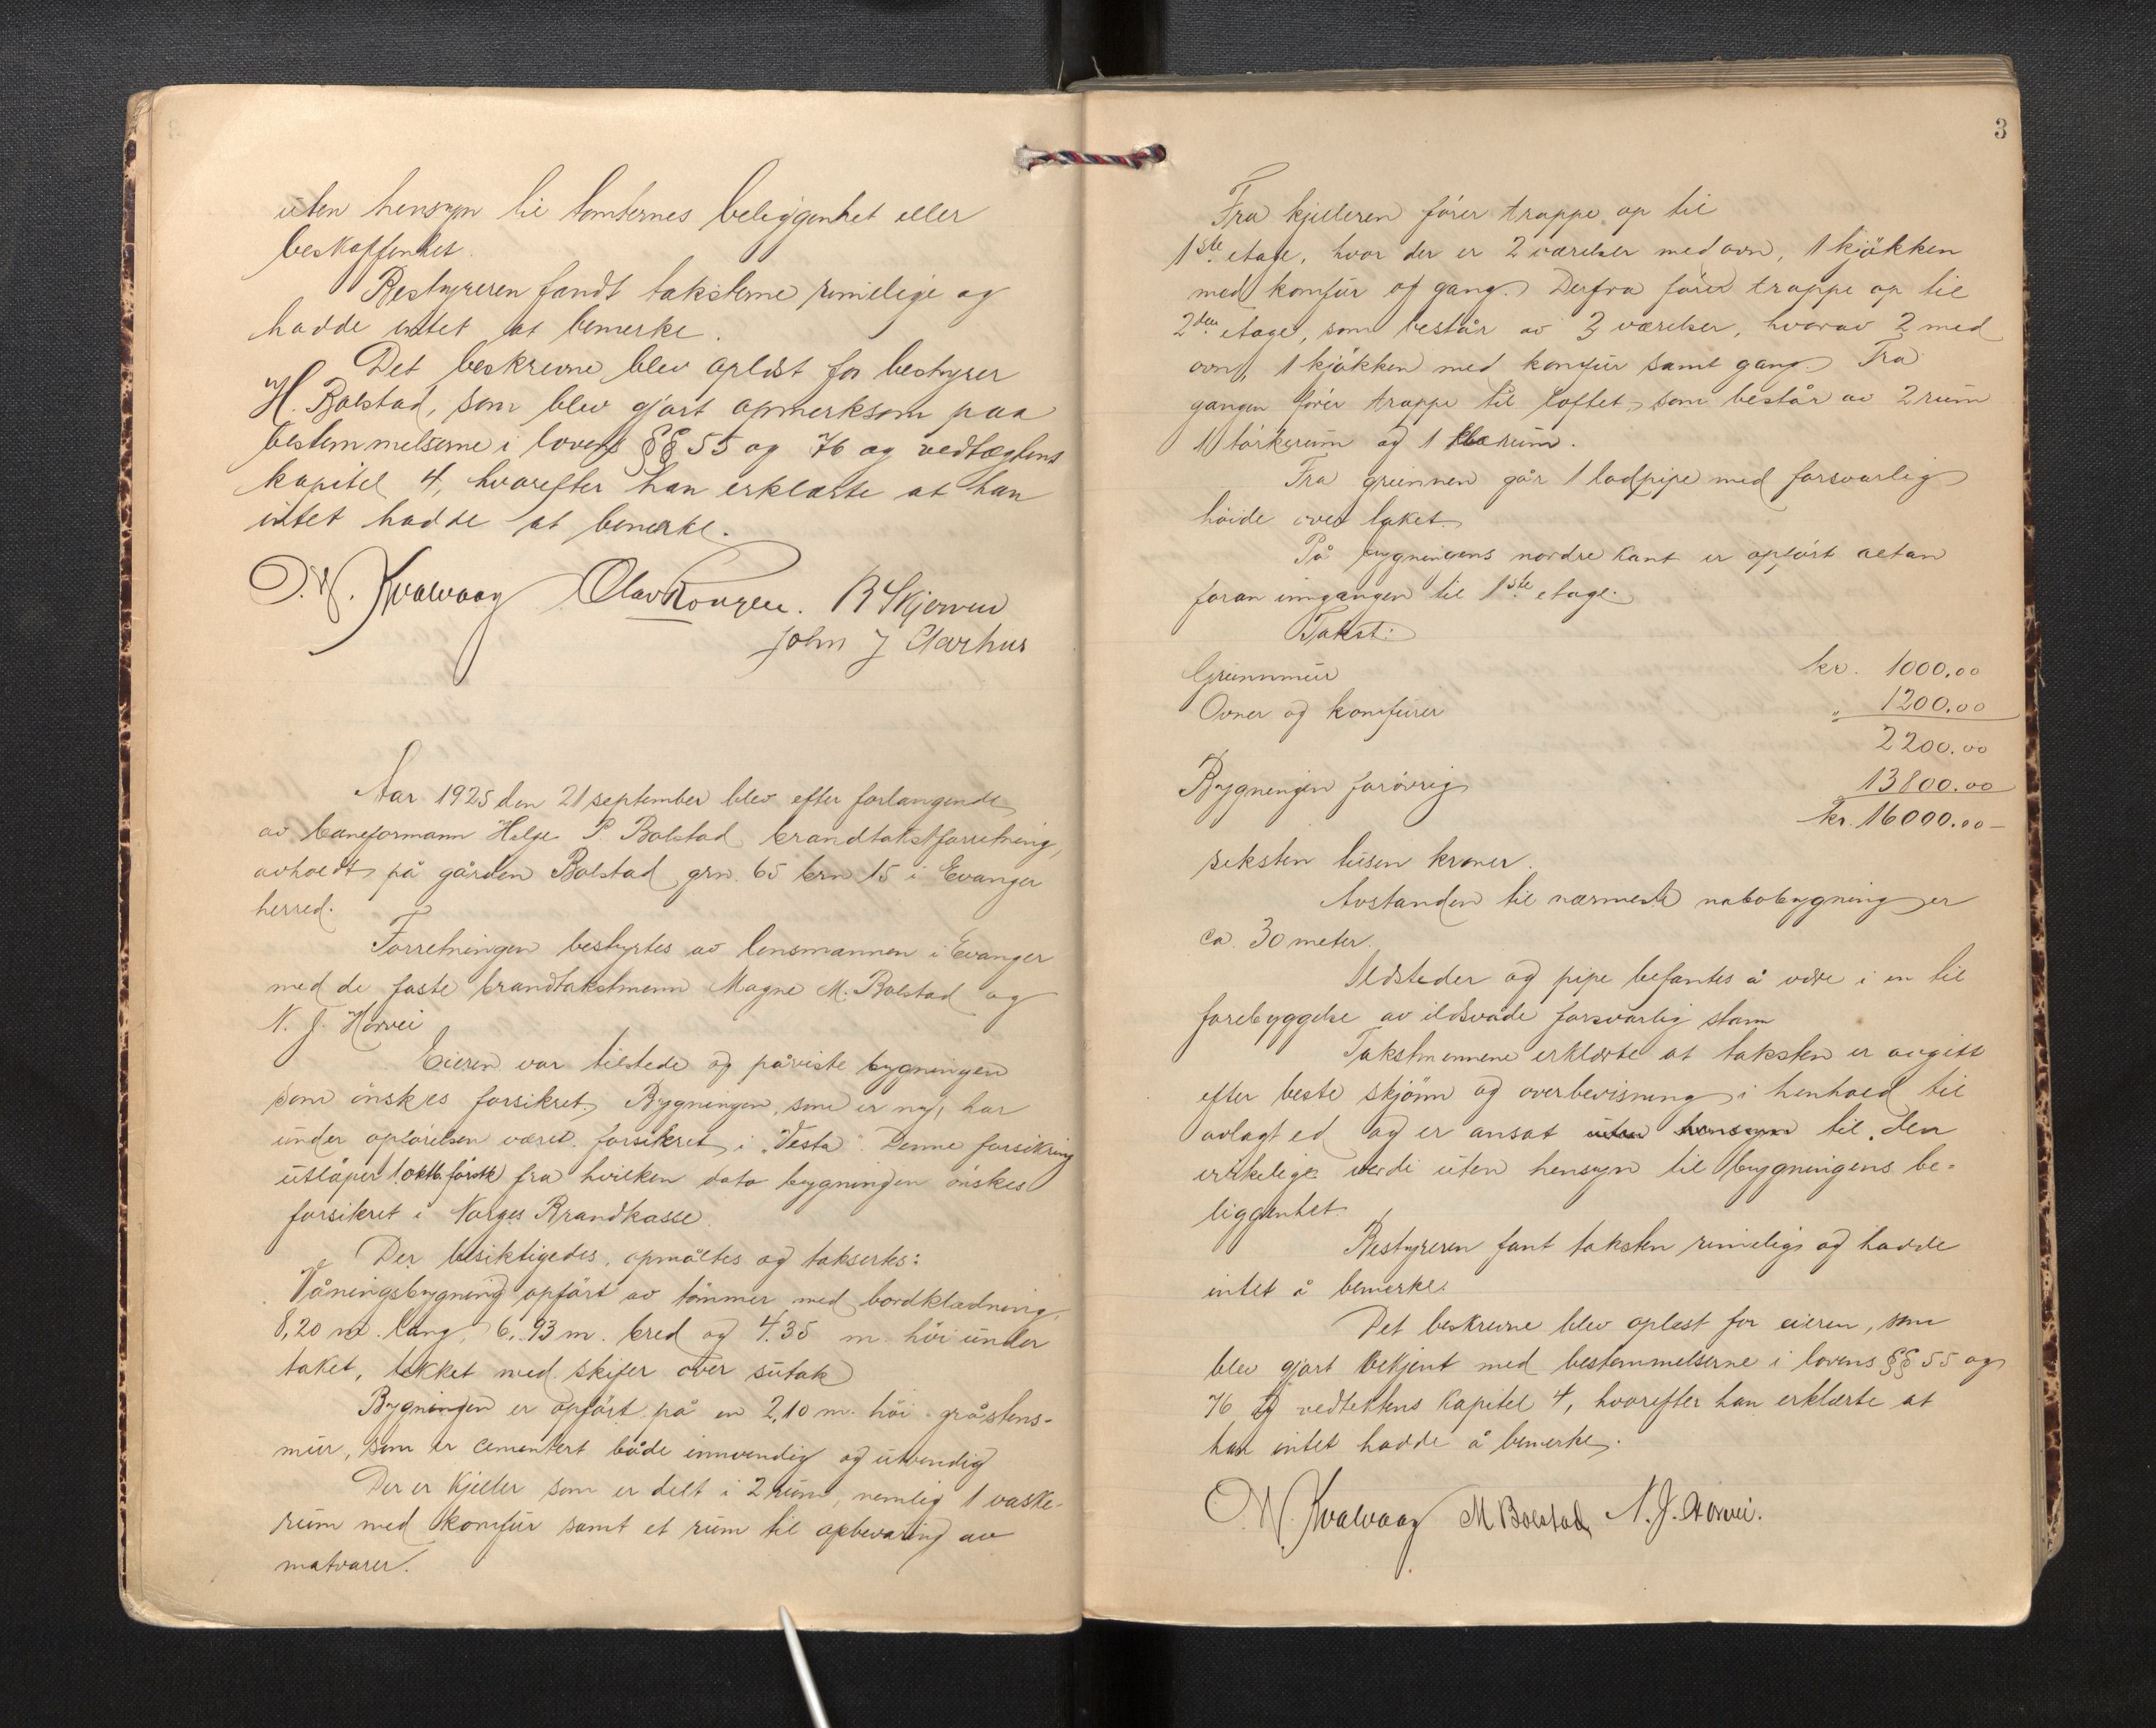 uten hensyn til tomternes beliggenhet eller
beskaffenhet.
Bestyreren fandt taksterne rimelige og
hadde intet at bemerke.
Det beskrevne blev oplæst for bestyrer
H. Bolstad, som blev gjort opmerksom paa
bestemmelserne i lovens §§ 55 og 76 og vedtægtens
kapitel 4, hvorefter han erklærte at han
intet hadde at bemerke.
O. N. Kvalvaag Olav B Skjerven
John J Aarhus
Aar 1925 den 21 september blev efter forlangende
av baneformann Helge P. Bolstad brandtakstforretning,
avholdt på gården Bolstad grn. 65 brn 15 i Evanger
herred.
Forretningen bestyrtes av lensmannen i Evanger
med de faste brandtakstmenn Magne M. Bolstad og
N. J. Horvei
Eieren var tilstede og påviste bygningen
som önskes forsikret. Bygningen, som er ny, har
under opförelsen været forsikret i "Vesta". Denne forsikring
utlöper 1 oktb. förstk fra hvilken dato bygningen önskes
forsikret i Norges Brandkasse.
Der besiktigedes, opmåltes og takserte:
Våningsbygning opfört av tömmer med bordklædning,
8,20 m. lang, 6,93 m. bred og 4,35 m. höi under
taket, tekket med skifer over sutak
Bygningen er opfört på en 2,10 m. höi gråstens-
mur, som er cementert både innvendig og utvendig
Der er kjeller som er delt i 2 rum, nemlig 1 vaske-
rum med komfur samt et rum til opbevaring av
matvarer.
3
Fra kjelleren förer trappe op til
1ste etage, hvor der er 2 værelser med ovn, 1 kjökken
med komfur og gang. Derfra förer trappe op til
2den etage, som består av 3 værelser, hvorav 2 med
ovn, 1 kjökken med komfur samt gang. Fra
gangen förer trappe til loftet, som består av 2 rum
1 törkerum og 1 rum.
Fra grunnen går 1 lodpipe med forsvarlig
höide over taket.
På bygningens nordre kant er opfört altan
foran inngangen til 1ste etage.
Takst:
Grunnmur kr. 1000.00
Ovner og komfurer " 1200.00
2200.00
Bygningen forövrig 13800.00
kr. 16000.00 -
seksten tusen kroner.
Avstanden til nærmeste nabobygning er
ca. 30 meter.
Ildsteder og pipe befantes å være i en til
forebyggelse av ildsvåde forsvarlig stann
Takstmennene erklærte at taksten er avgitt
efter beste skjönn og overbevisning i henhold til
avlagt ed og er ansat uten hensyn til den
virkelige verdi uten hensyn til bygningens be-
liggenhet.
Bestyreren fant taksten rimelig og hadde
intet å bemerke.
Det beskrevne blev oplest for eieren, som
blev gjort bekjent med bestemmelserne i lovens §§ 55 og
76 og vedtektens kapitel 4, hvorefter han erklærte at
han intet hadde å bemerke.
O. N. Kvalvaag M Bolstad N. J. Horvei.